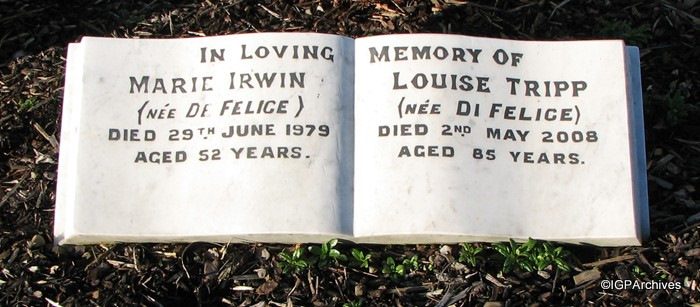 IN LOVING MEMORY OF
MARIE IRWIN
(NÉE DE FELICE)
DIED 29TH JUNE 1979
AGED 52 YEARS.
LOUISE TRIPP
(NÉE DI FELICE)
DIED 2ND MAY 2008
AGED 85 YEARS.
©IGPArchives